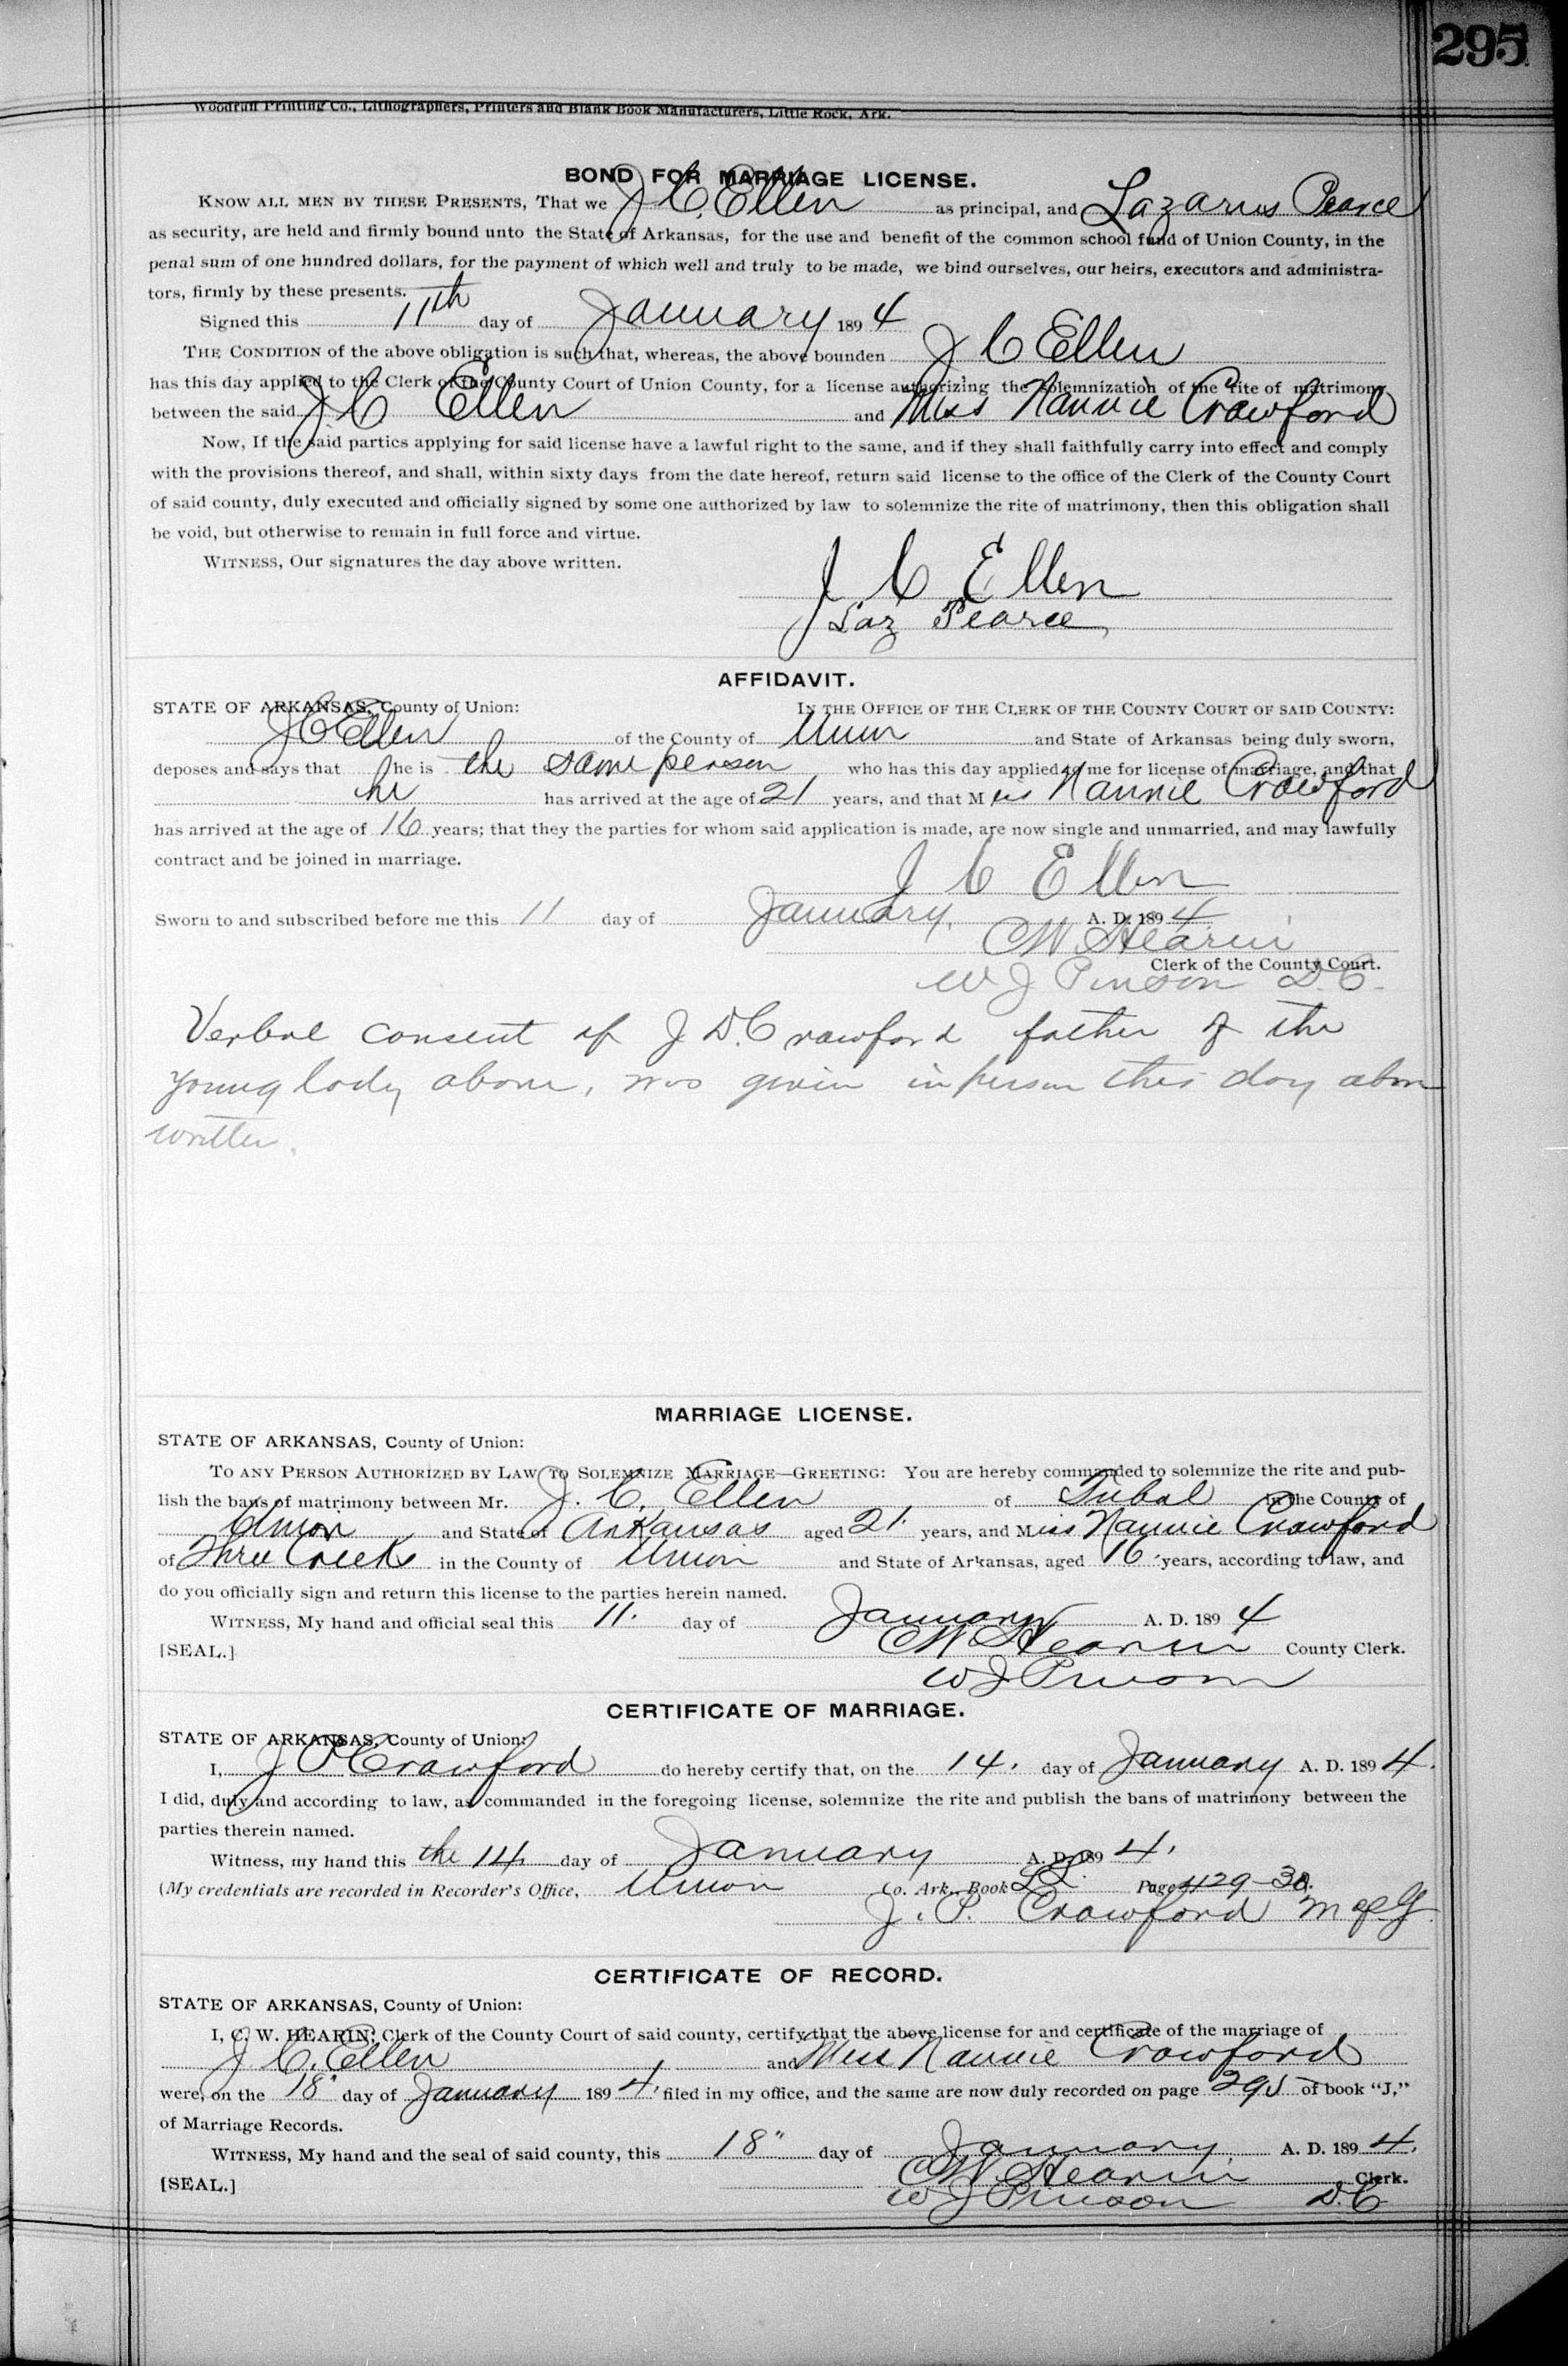 295
Woodruff Printing Co., Lithographers, Printers and Blank Book Manufacturers, Little Rock, Ark.
BOND FOR MARRIAGE LICENSE.
KNOW ALL MEN BY THESE PRESENTS, That we J. C. Ellen as principal, and Lazarus Pearce
as security, are held and firmly bound unto the State of Arkansas, for the use and benefit of the common school fund of Union County, in the
penal sum of one hundred dollars, for the payment of which well and truly to be made, we bind ourselves, our heirs, executors and administra-
tors, firmly by these presents.
Signed this 11th day of January 1894
THE CONDITION of the above obligation is such that, whereas, the above bounden J C Ellen
has this day applied to the Clerk of the County Court of Union County, for a license authorizing the solemnization of the rite of matrimony
between the said J C Ellen and Miss Nannie Crawford
Now, If the said partics applying for said license have a lawful right to the same, and if they shall faithfully carry into effect and comply
with the provisions thereof, and shall, within sixty days from the date hereof, return said license to the office of the Clerk of the County Court
of said county, duly executed and officially signed by some one authorized by law to solemnize the rite of matrimony, then this obligation shall
be void, but otherwise to remain in full force and virtue.
WITNESS, Our signatures the day above written.
J C Ellen
Laz Pearce
AFFIDAVIT.
STATE OF ARKANSAS, County of Union: IN THE OFFICE OF THE CLERK OF THE COUNTY COURT OF SAID COUNTY:
J C Ellen of the County of Union and State of Arkansas being duly sworn,
deposes and says that he is the same person who has this day applied to me for license of marriage, and that
he has arrived at the age of 21 years, and that Miss Nannie Crawford
has arrived at the age of 16 years; that they the parties for whom said application is made, are now single and unmarried, and may lawfully
contract and be joined in marriage.
J C Ellen
Sworn to and subscribed before me this 11 day of January. A. D. 1894
C W Hearin
Clerk of the County Court.
W J Pinson D.C.
Verbal consent of J D. Crawford father of the
young lady above, was given in person this day above
written.
MARRIAGE LICENSE.
STATE OF ARKANSAS, County of Union:
TO ANY PERSON AUTHORIZED BY LAW TO SOLEMNIZE MARRIAGE—GREETING: You are hereby commanded to solemnize the rite and pub-
lish the bans of matrimony between Mr. J. C. Ellen of Tubal in the County of
Union and State of Arkansas aged 21 years, and Miss Nannie Crawford
of Three Creeks in the County of Union and State of Arkansas, aged 16 years, according to law, and
do you officially sign and return this license to the parties herein named.
WITNESS, My hand and official seal this 11. day of January A. D. 1894
[SEAL.] C W Hearin County Clerk.
W J Pinson
CERTIFICATE OF MARRIAGE.
STATE OF ARKANSAS, County of Union:
I, J P Crawford do hereby certify that, on the 14. day of January A. D. 1894.
I did, duly and according to law, as commanded in the foregoing license, solemnize the rite and publish the bans of matrimony between the
parties therein named.
Witness, my hand this the 14 day of January A. D. 1894.
(My credentials are recorded in Recorder's Office, Union Co. Ark. Book Page 429-30.
J. P. Crawford M of G
CERTIFICATE OF RECORD.
STATE OF ARKANSAS, County of Union:
I, C. W. HEARIN, Clerk of the County Court of said county, certify that the above license for and certificate of the marriage of
J. C. Ellen and Miss Nannie Crawford
were, on the 18" day of January 1894, filed in my office, and the same are now duly recorded on page 295 of book "J,"
of Marriage Records.
WITNESS, My hand and the seal of said county, this 18" day of January, A. D. 1894.
[SEAL.] C W Hearin Clerk.
W J Pinson D.C